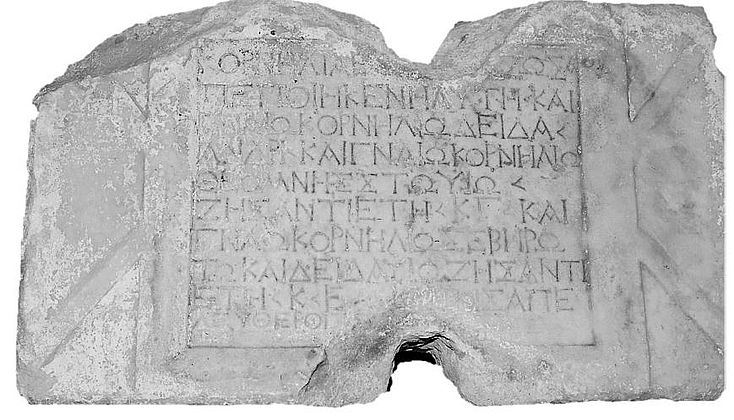 ΚΟΡΝΗΛΙΑ ΖΩΣΑ
ΠΕΠΟΙΗΚΕΝΗΑΥΤΗ<ΚΑΙ
ΓΝΑΙΩΚΟΡΝΗΛΙΩΔΕΙΔΑ<
ΑΝΔΡΙΚΑΙΓΝΑΙΩΚΟΡΝΗΛΙΩ
ΘΕΟΜΝΗΣΤΩΥΙΩ<
ΖΗΣΑΝΤΙΕΤΗ<ΚΓ<ΚΑΙ
ΓΝΑΙΩΚΟΡΝΗΛΙΩΣΕΒΗΡΩ
ΤΩΚΑΙΔΕΙΔΑΥΙΩΖΗΣΑΝΤΙ
ΕΤΗ<Κ<Ε ΙΣΑΠΕ